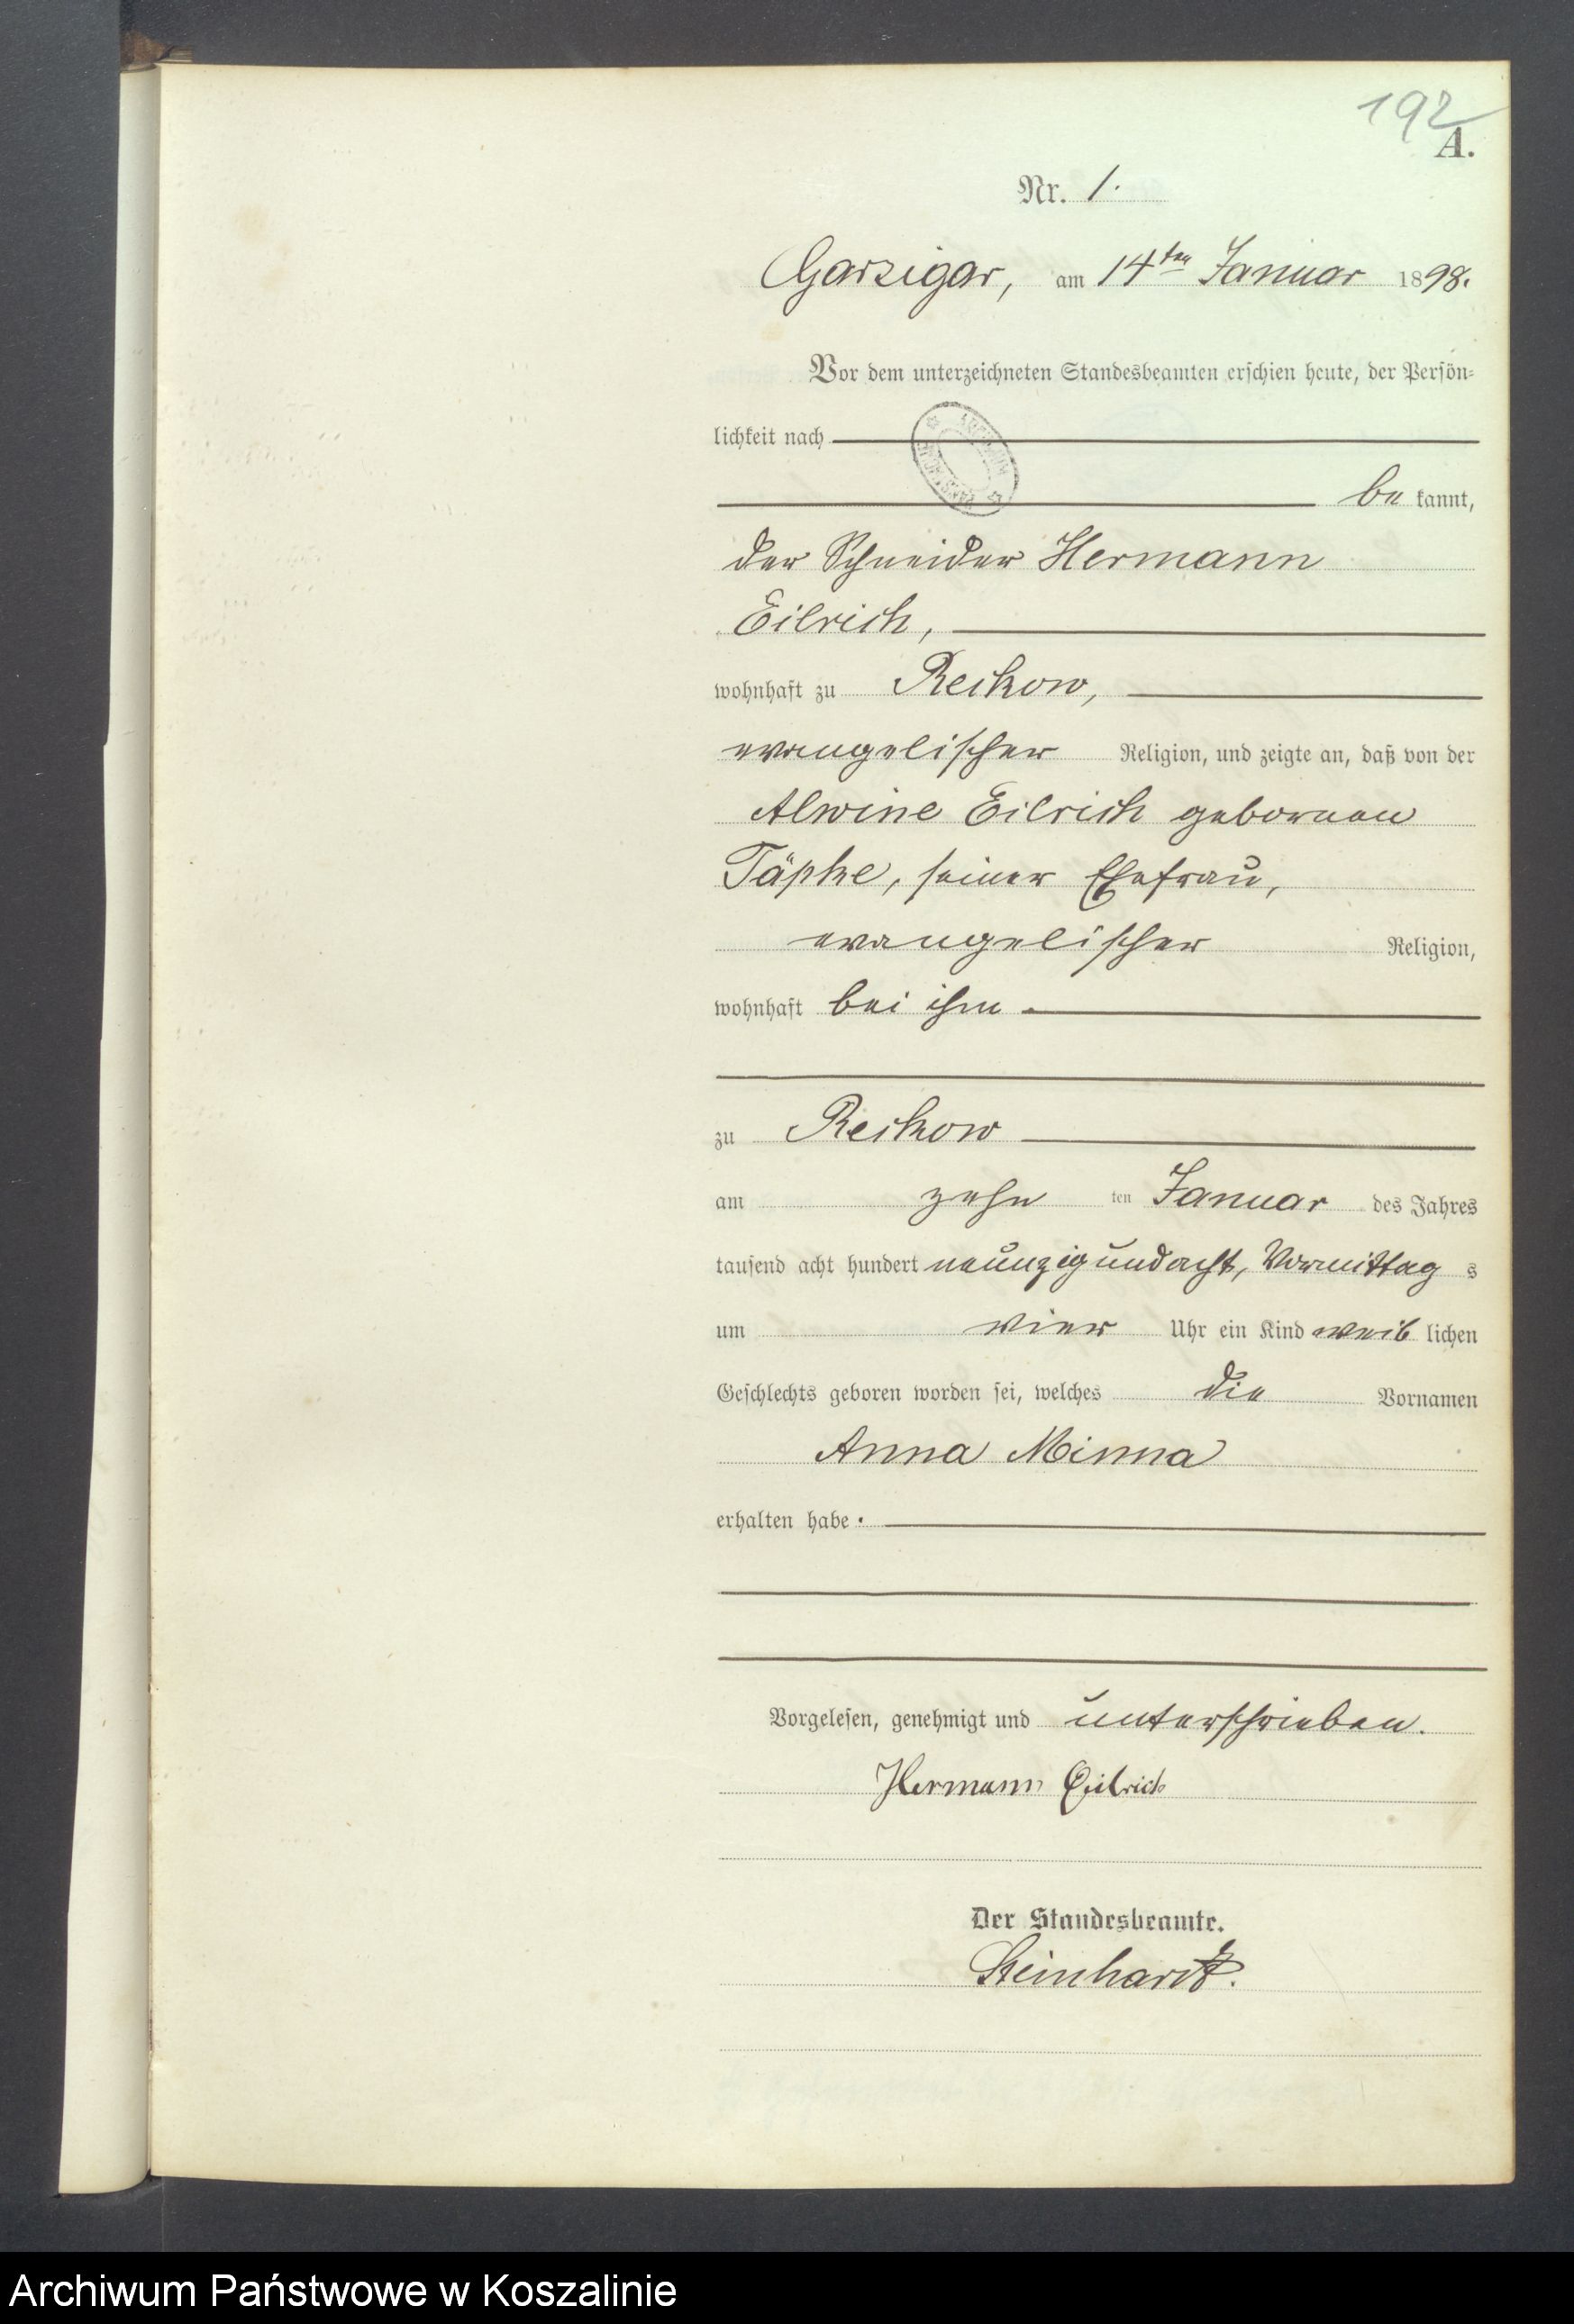 192
A.
Nr. 1.
Garzigar, am 14ten Januar 1898.
Vor dem unterzeichneten Standesbeamten erschien heute, der Persön-
lichkeit nach
be kannt,
der Schneider Hermann
Eilrich,
wohnhaft zu Reckow,
evangelischer Religion, und zeigte an, daß von der
Alwine Eilrich gebornen
Täpke, seiner Ehefrau,
evangelischer Religion,
wohnhaft bei ihm
zu Reckow
am zehn ten Januar des Jahres
tausend acht hundert neunzig und acht, Vormittag s
um vier Uhr ein Kind weib lichen
Geschlechts geboren worden sei, welches die Vornamen
Anna Minna
erhalten habe.
Vorgelesen, genehmigt und unterschrieben.
Hermann Eilrich
Der Standesbeamte.
Steinhardt.
Archiwum Państwowe w Koszalinie